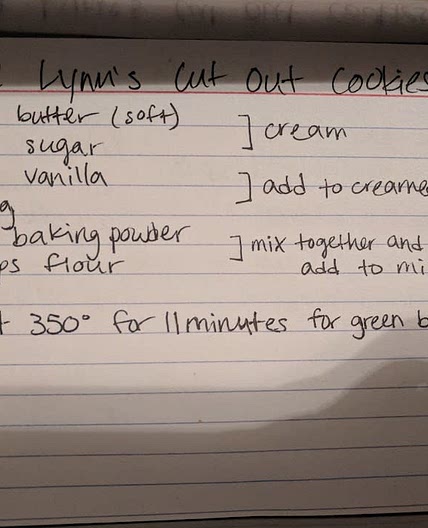 Lynn's Cut Out Cookies
butter (soft) ] cream
sugar
vanilla ] add to creame
g
baking powder ] mix together and
ps flour add to mi
t 350° for 11 minutes for green b